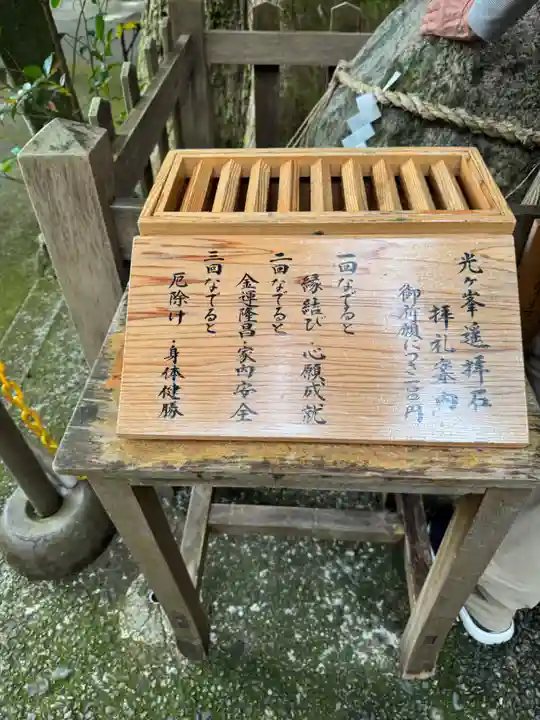 光ヶ峯遥拝石
拝礼案内
御祈願につき一〇〇円
一回なでると
縁結び・心願成就
二回なでると
金運隆昌・家内安全
三回なでると
厄除け・身体健勝